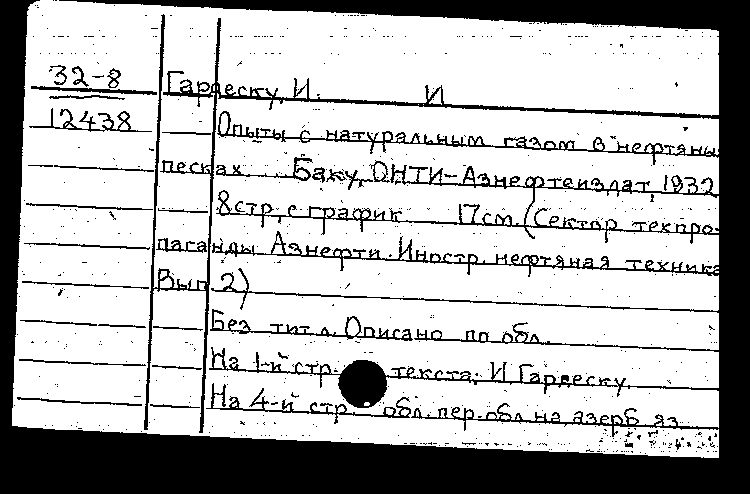 32-8 Гардеску, И. И
12438 Опыты с натуральным газом в нефтяны
песках. Баку, ОНТИ-Азнефтеиздат, 1932
8стр, с график 17см. (Сектор техпро-
паганды Азнефти. Иностр. нефтяная техника
Вып. 2)
Без тит. л. Описано по обл.
На 1-й стр. текста: И. Гардеску.
На 4-й стр. обл. пер. обл. на азерб. яз.